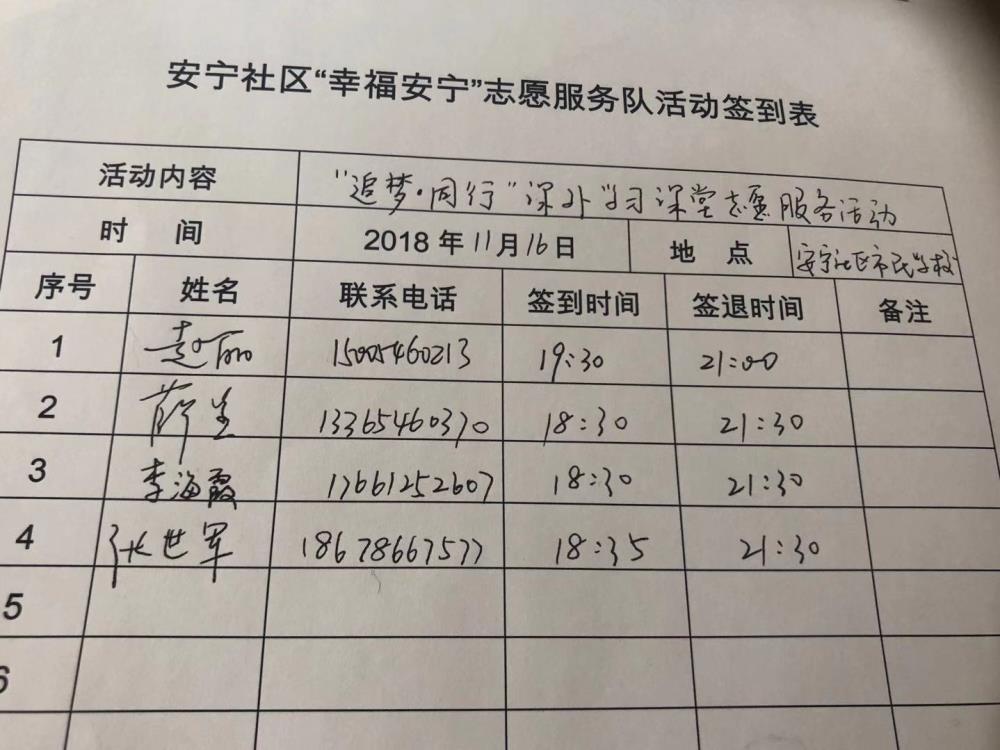 安宁社区“幸福安宁”志愿服务队活动签到表
活动内容 “追梦·同行”课外学习课堂志愿服务活动
时 间 2018年11月16日 地 点 安宁社区市民学校
序号 姓名 联系电话 签到时间 签退时间 备注
1 赵丽 15005460213 19:30 21:00
2 薛生 13365460370 18:30 21:30
3 李海霞 17661252607 18:30 21:30
4 张世军 18678667577 18:35 21:30
5
6